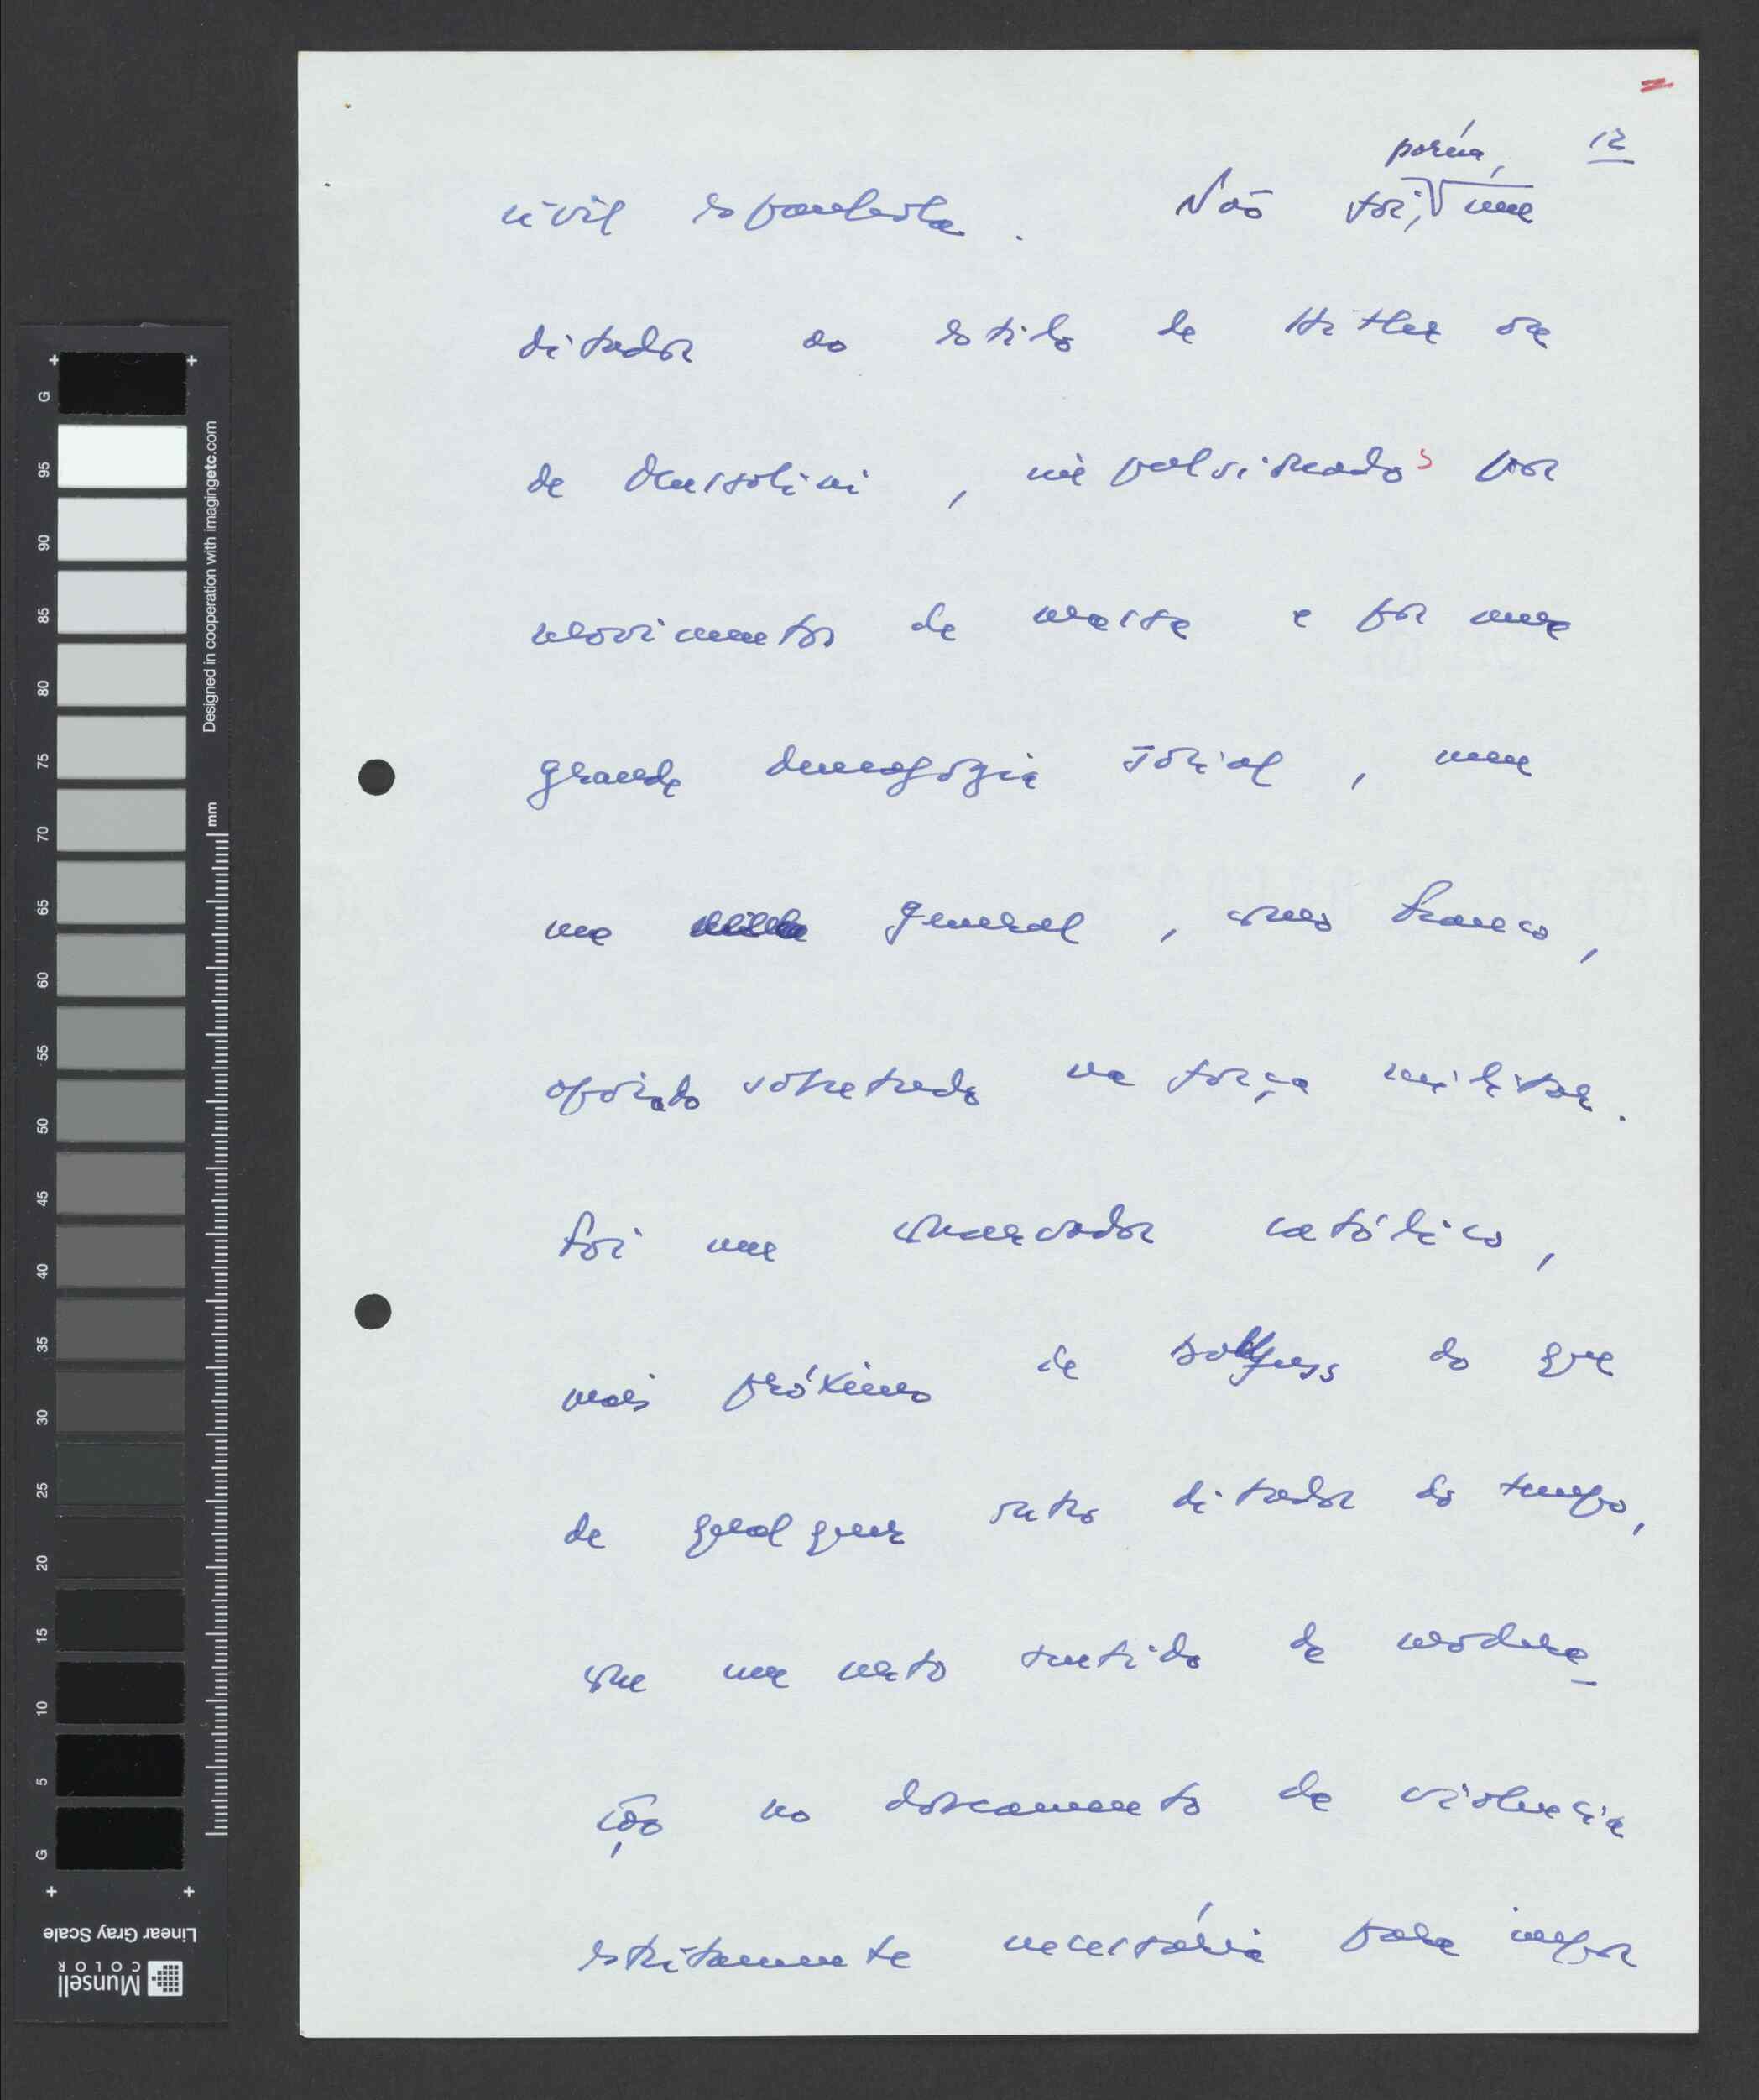 12
porém,
civil espanhola. Não foi, um
ditador ao estilo de Hitler ou
de Mussolini, impulsionados por
movimentos de massa e por uma
grande demagogia social, nem
um general, como Franco,
apoiado sobretudo na força militar.
Foi um conservador católico,
mais próximo de Dollfuss do que
de qualquer outro ditador do tempo,
com um certo sentido de modera-
ção no doseamento da violência
estritamente necessária para impor
G 95 90 85 80 75 70 65 60 55 50 45 40 35 30 25 20 15 10 5 G
mm
Designed in cooperation with imagingetc.com
Linear Gray Scale
Munsell
COLOR